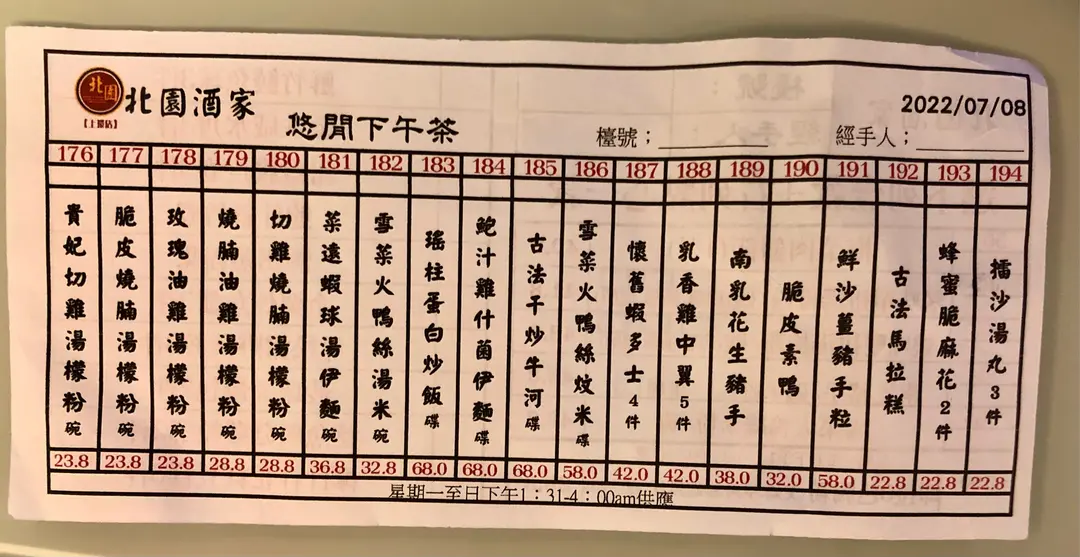 北園
【上環店】
北園酒家
悠閒下午茶
2022/07/08
檯號；
經手人；
176 177 178 179 180 181 182 183 184 185 186 187 188 189 190 191 192 193 194
貴妃切雞湯檬粉 碗
脆皮燒腩湯檬粉 碗
玫瑰油雞湯檬粉 碗
燒腩油雞湯檬粉 碗
切雞燒腩湯檬粉 碗
菜遠蝦球湯伊麵 碗
雪菜火鴨絲湯米 碗
瑤柱蛋白炒飯 碟
鮑汁雞什菌伊麵 碟
古法干炒牛河 碟
雪菜火鴨絲炆米 碟
懷舊蝦多士 4件
乳香雞中翼 5件
南乳花生豬手
脆皮素鴨
鮮沙薑豬手粒
古法馬拉糕
蜂蜜脆麻花 2件
擂沙湯丸 3件
23.8 23.8 23.8 28.8 28.8 36.8 32.8 68.0 68.0 68.0 58.0 42.0 42.0 38.0 32.0 58.0 22.8 22.8 22.8
星期一至日下午1：31-4：00am供應